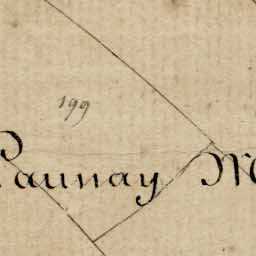 199
Launay M